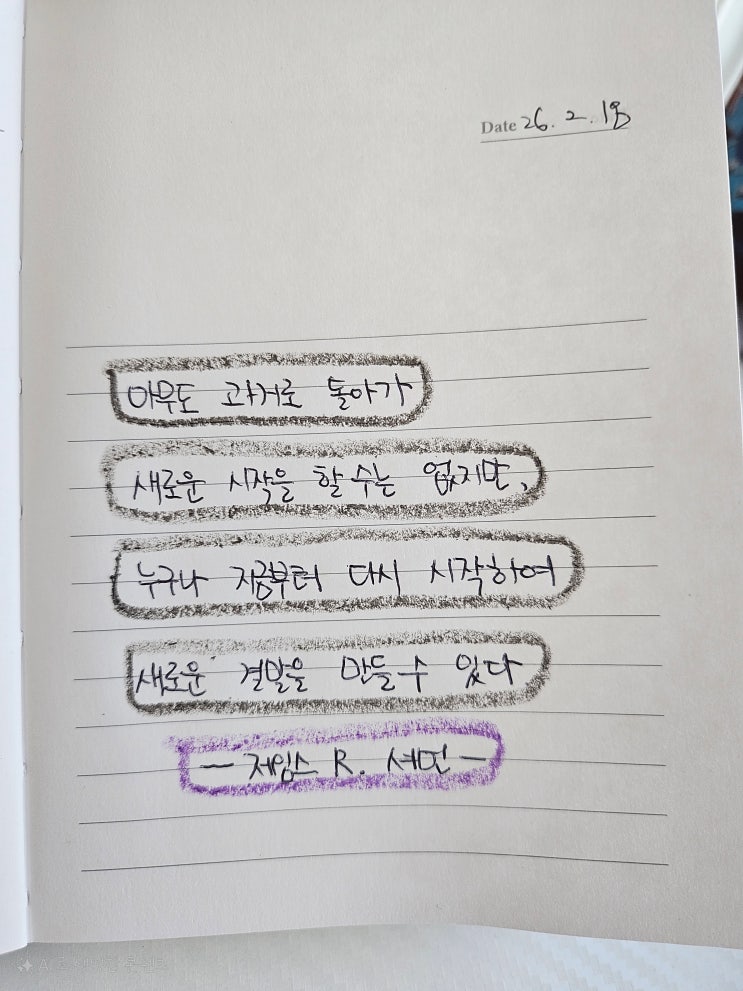 Date 26. 2. 18
아무도 과거로 돌아가
새로운 시작을 할 수는 없지만,
누구나 지금부터 다시 시작하여
새로운 결말을 만들 수 있다
- 제임스 R. 셔먼 -